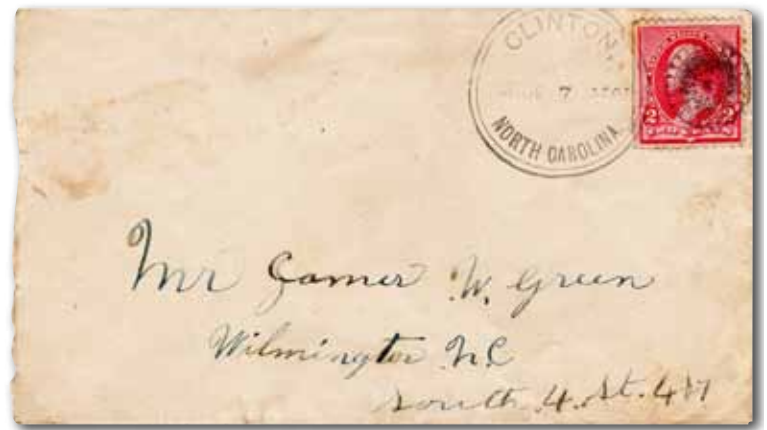 CLINTON,
7
NORTH CAROLINA
2 2
Mr James W. Green
Wilmington N.C
South 4. St. 417